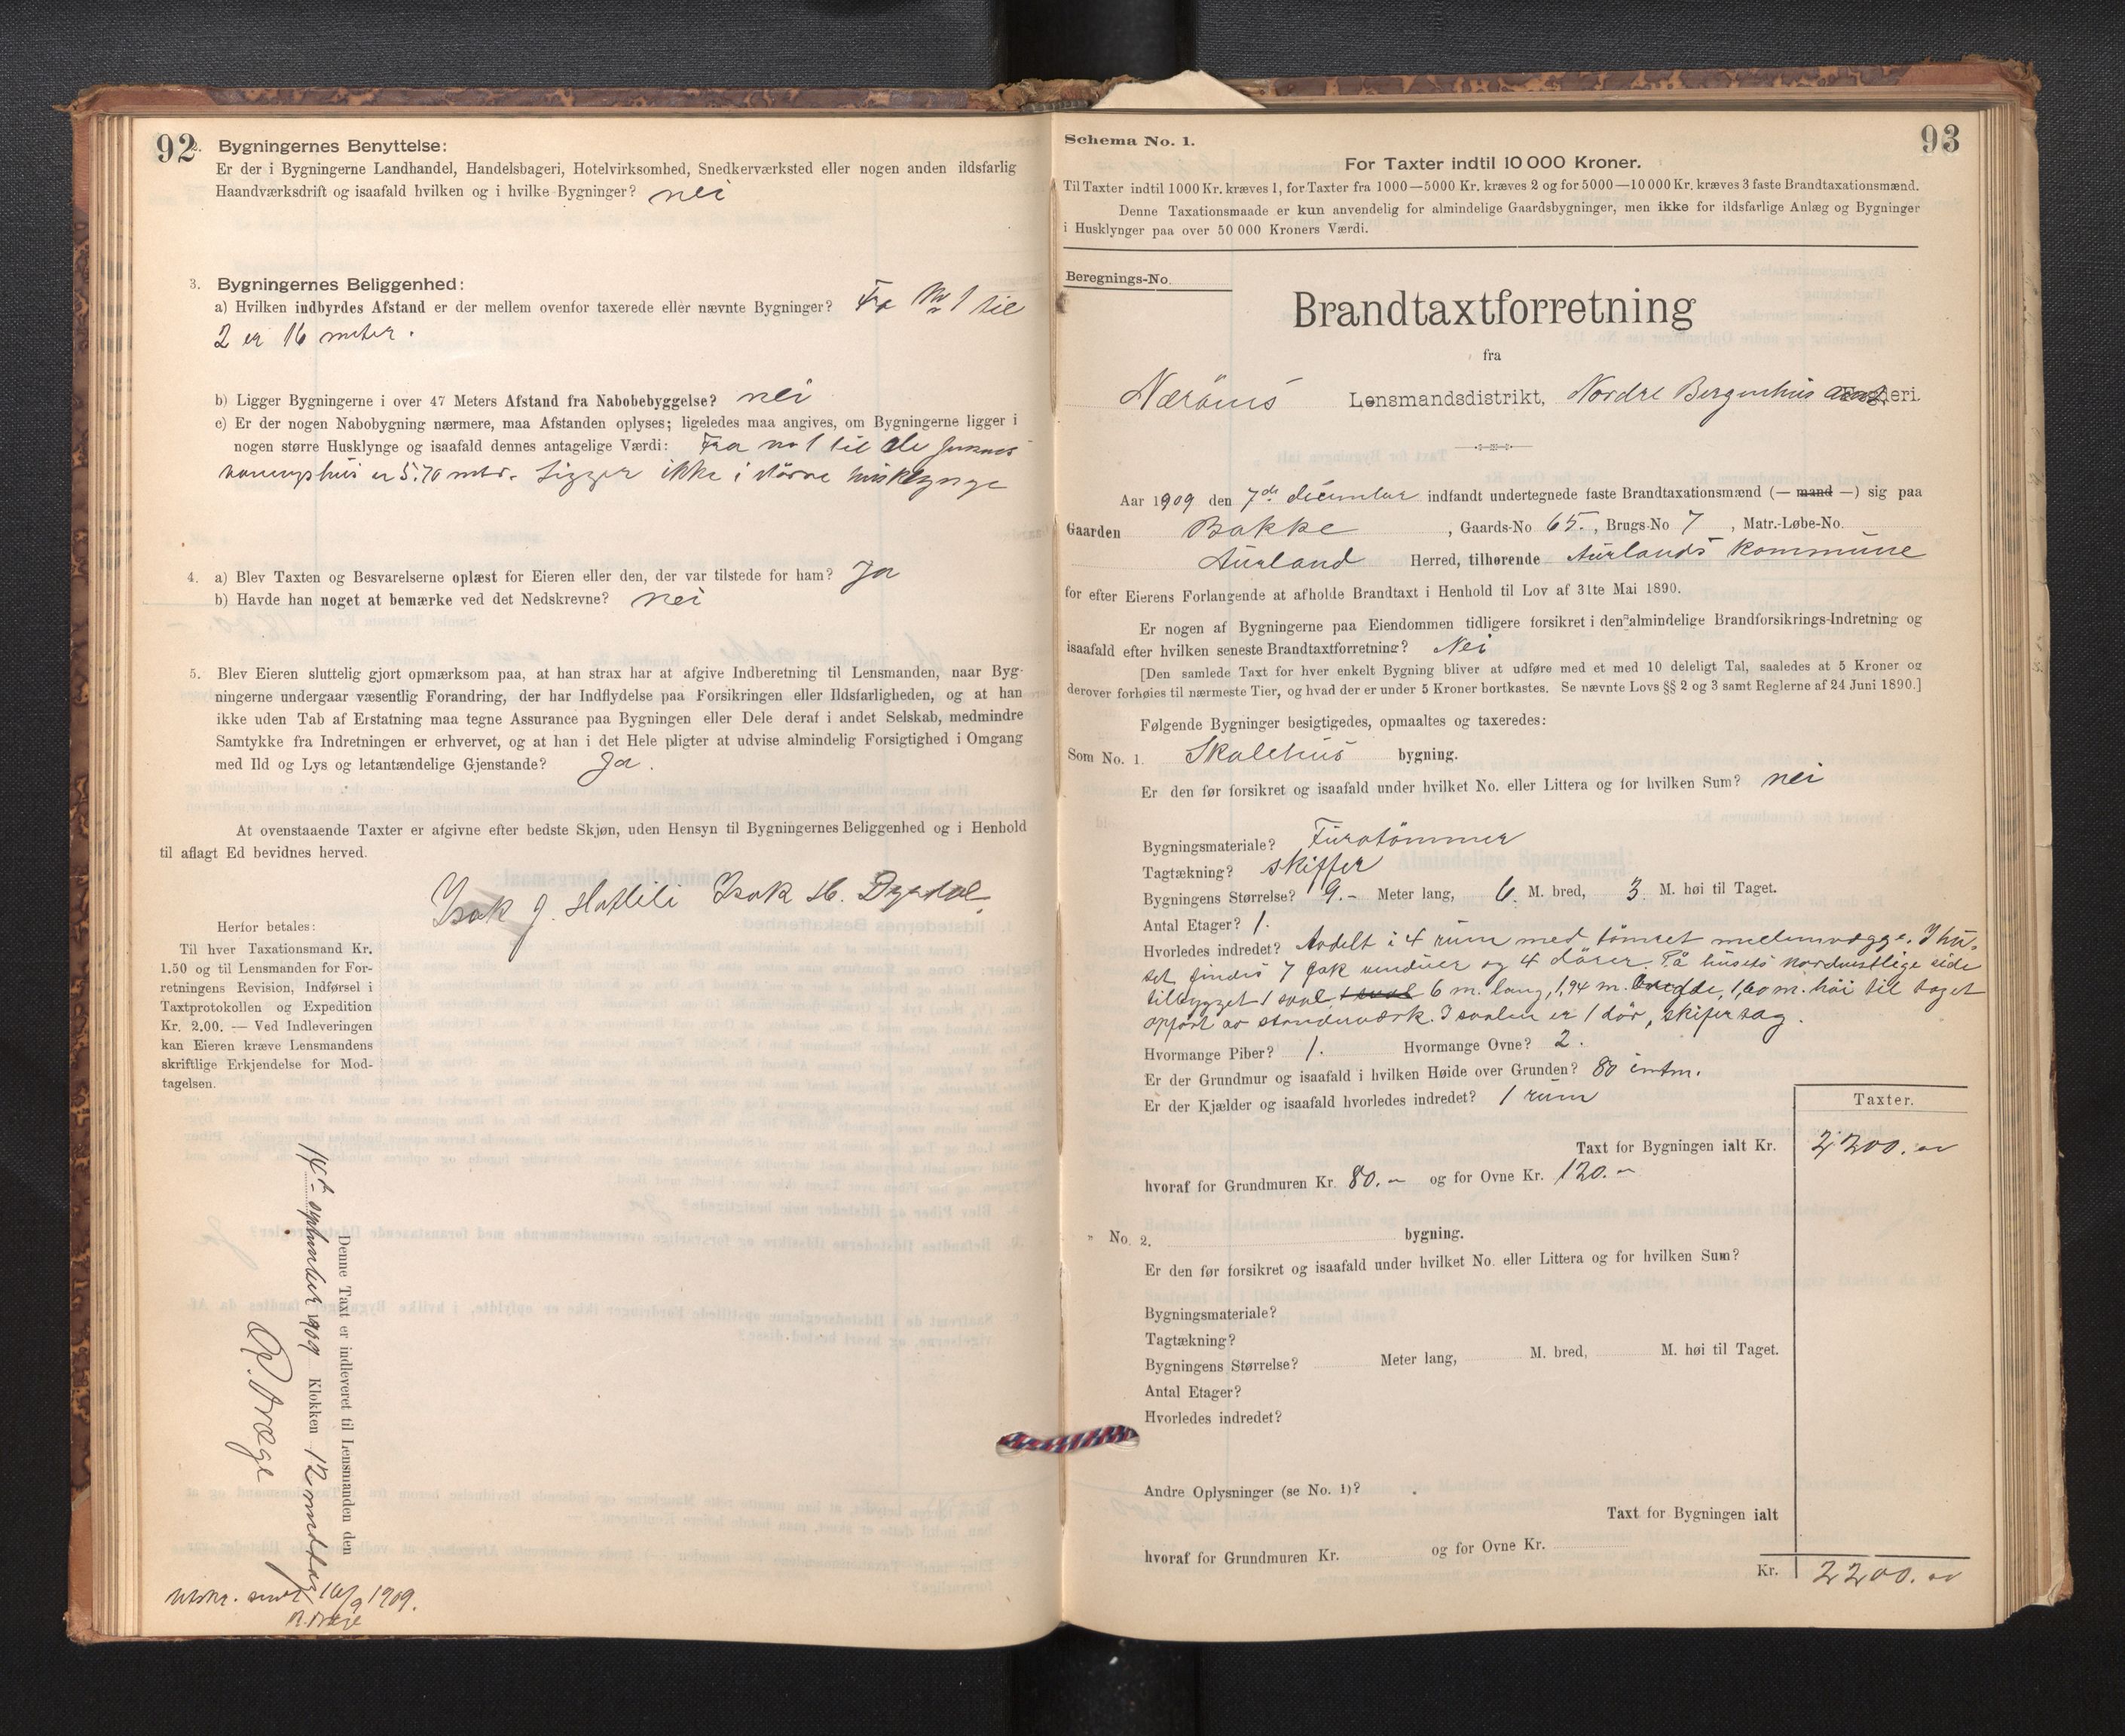 92
2. Bygningernes Benyttelse:
Er der i Bygningerne Landhandel, Handelsbageri, Hotelvirksomhed, Snedkerværksted eller nogen anden ildsfarlig
Haandværksdrift og isaafald hvilken og i hvilke Bygninger? nei
3. Bygningernes Beliggenhed:
a) Hvilken indbyrdes Afstand er der mellem ovenfor taxerede eller nævnte Bygninger? Fra No 1 til
2 er 16 meter.
b) Ligger Bygningerne i over 47 Meters Afstand fra Nabobebyggelse? nei
c) Er der nogen Nabobygning nærmere, maa Afstanden oplyses; ligeledes maa angives, om Bygningerne ligger i
nogen større Husklynge og isaafald dennes antagelige Værdi: Fra no 1 til
er 5.70 mtr. Ligger ikke i større husklynge
4. a) Blev Taxten og Besvarelserne oplæst for Eieren eller den, der var tilstede for ham? Ja
b) Havde han noget at bemærke ved det Nedskrevne? nei
5. Blev Eieren sluttelig gjort opmærksom paa, at han strax har at afgive Indberetning til Lensmanden, naar Byg-
ningerne undergaar væsentlig Forandring, der har Indflydelse paa Forsikringen eller Ildsfarligheden, og at han
ikke uden Tab af Erstatning maa tegne Assurance paa Bygningen eller Dele deraf i andet Selskab, medmindre
Samtykke fra Indretningen er erhvervet, og at han i det Hele pligter at udvise almindelig Forsigtighed i Omgang
med Ild og Lys og letantændelige Gjenstande? Ja.
At ovenstaaende Taxter er afgivne efter bedste Skjøn, uden Hensyn til Bygningernes Beliggenhed og i Henhold
til aflagt Ed bevidnes herved.
Isak J. Hatlili Isak H. Dyrdal.
Herfor betales:
Til hver Taxationsmand Kr.
1.50 og til Lensmanden for For-
retningens Revision, Indførsel i
Taxtprotokollen og Expedition
Kr. 2.00. — Ved Indleveringen
kan Eieren kræve Lensmandens
skriftlige Erkjendelse for Mod-
tagelsen.
Denne Taxt er indleveret til Lensmanden den
14de september 1909 Klokken 12 middag
Utskr. sendt 16/9 1909.
93
Schema No. 1.
For Taxter indtil 10 000 Kroner.
Til Taxter indtil 1000 Kr. kræves 1, for Taxter fra 1000—5000 Kr. kræves 2 og for 5000—10 000 Kr. kræves 3 faste Brandtaxationsmænd.
Denne Taxationsmaade er kun anvendelig for almindelige Gaardsbygninger, men ikke for ildsfarlige Anlæg og Bygninger
i Husklynger paa over 50 000 Kroners Værdi.
Beregnings-No.
Brandtaxtforretning
fra
Nærøens Lensmandsdistrikt, Nordre Bergenhus amt
Aar 1909 den 7de december indfandt undertegnede faste Brandtaxationsmænd (— mand —) sig paa
Gaarden Bakke , Gaards-No 65. , Brugs-No 7 , Matr.-Løbe-No.
Aurland Herred, tilhørende Aurlands Kommune
for efter Eierens Forlangende at afholde Brandtaxt i Henhold til Lov af 31te Mai 1890.
Er nogen af Bygningerne paa Eiendommen tidligere forsikret i den almindelige Brandforsikrings-Indretning og
isaafald efter hvilken seneste Brandtaxtforretning? Nei
[Den samlede Taxt for hver enkelt Bygning bliver at udføre med et med 10 deleligt Tal, saaledes at 5 Kroner og
derover forhøies til nærmeste Tier, og hvad der er under 5 Kroner bortkastes. Se nævnte Lovs §§ 2 og 3 samt Reglerne af 24 Juni 1890.]
Følgende Bygninger besigtigedes, opmaaltes og taxeredes:
Som No. 1. Skolehus bygning.
Er den før forsikret og isaafald under hvilket No. eller Littera og for hvilken Sum? nei
Bygningsmateriale? Furutømmer
Tagtækning? skiffer
Bygningens Størrelse? 9.- Meter lang, 6. M. bred, 3. M. høi til Taget.
Antal Etager? 1.
Hvorledes indredet? Avdelt i 4 rum med tømret mellemvægge. I hu-
set findes 7 fak vinduer og 4 dører. På husets nordvestlige side
tilbygget 1 sval 6 m. lang, 1,94 m. bredde, 1,60 m. høi til taget
opført av stenderværk. I svalen er 1 dør, skifertag.
Hvormange Piber? 1. Hvormange Ovne? 2.
Er der Grundmur og isaafald i hvilken Høide over Grunden? 80 cntm.
Er der Kjælder og isaafald hvorledes indredet? 1 rum
Taxter.
Taxt for Bygningen ialt Kr. 2200.
hvoraf for Grundmuren Kr. 80.- og for Ovne Kr. 120.-
" No. 2. bygning.
Er den før forsikret og isaafald under hvilket No. eller Littera og for hvilken Sum?
Bygningsmateriale?
Tagtækning?
Bygningens Størrelse? Meter lang, M. bred, M. høi til Taget.
Antal Etager?
Hvorledes indredet?
Andre Oplysninger (se No. 1)?
Taxt for Bygningen ialt
hvoraf for Grundmuren Kr. og for Ovne Kr.
Kr. 2200.